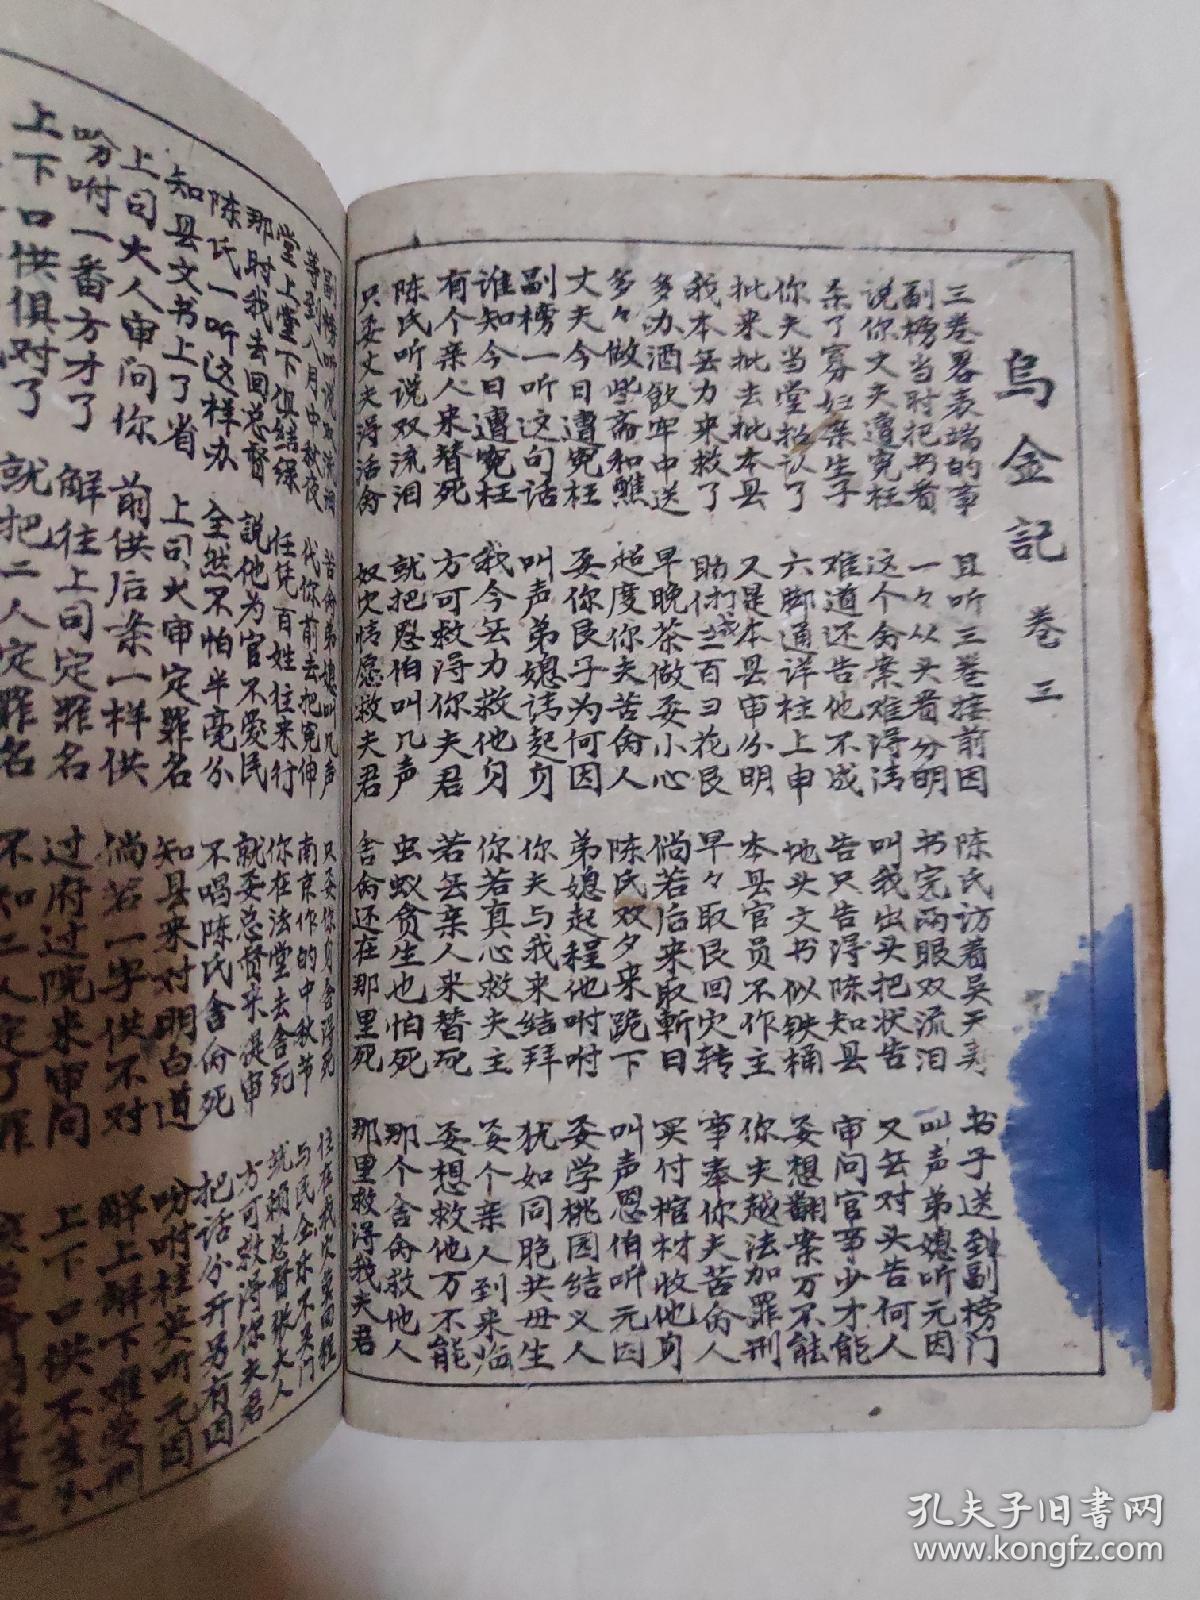 烏金記 卷三
三卷畧表端的事 且听三卷接前因 陈氏访着吴天寿 书子送到副榜门
副榜当时把书看 一々从头看分明 书完两眼双流泪 叫声弟媳听元因
说你丈夫遭冤枉 这个命案难得清 叫我出头把状告 又无对头告何人
杀了寡妇亲生子 难道还告他不成 告只告得陈知县 审问官事少才能
你夫当堂招认了 六脚通详柱上申 地头文书似铁桶 要想翻案万不能
批来批去批本县 又是本县审分明 本县官员不作主 你夫越法加罪刑
我本无力来救了 助你三百曰花艮 早々取艮回宍转 事奉你夫苦命人
多办酒飲牢中送 早晚茶做要小心 倘若后来取斬日 买付棺材收他身
多々做些斋和醮 超度你夫苦命人 陈氏双夕来跪下 叫声恩伯听元因
丈夫今日遭冤枉 要你艮子为何因 弟媳起程他吩咐 要学桃园结义人
副榜一听这句话 叫声弟媳请起身 你夫与我来结拜 犹如同胞共母生
谁知今日遭冤枉 我今无力救他身 你若真心救夫主 要个亲人到来临
有个亲人来替死 方可救得你夫君 若无亲人来替死 要想救他万不能
陈氏听说双流泪 就把恩怕叫几声 虫蚁贪生也怕死 那个舍命救他人
只要丈夫得活命 奴宍情愿救夫君 舍命还在那里死 那里救得我夫君
副榜听说双流泪 苦命弟媳叫几声 只要你身舍得死
等到八月中秋夜 代你前去把冤伸 南京作的中秋节
堂上堂下俱结绿 任凭百姓往来行 你在法堂去舍死 就赖总督张大人
那时我去回总督 説他为官不爱民 就要总督来提审 方可救得你夫君
陈氏一听这样办 全然不怕半毫分 不唱陈氏舍命死 把话分开另有因
知县文书上了省 上司火审定罪名 知县来对明白道 吩咐桂英听元因
上司大人审问你 前供后案一样供 倘若一字供不对 解上解下难受刑
吩咐一番方才了 解往上司定罪名 过府过院来审问 上下口供不差分
上下口供俱对了 就把二人定罪名 不知二人定了罪
孔夫子旧书网
www.kongfz.com